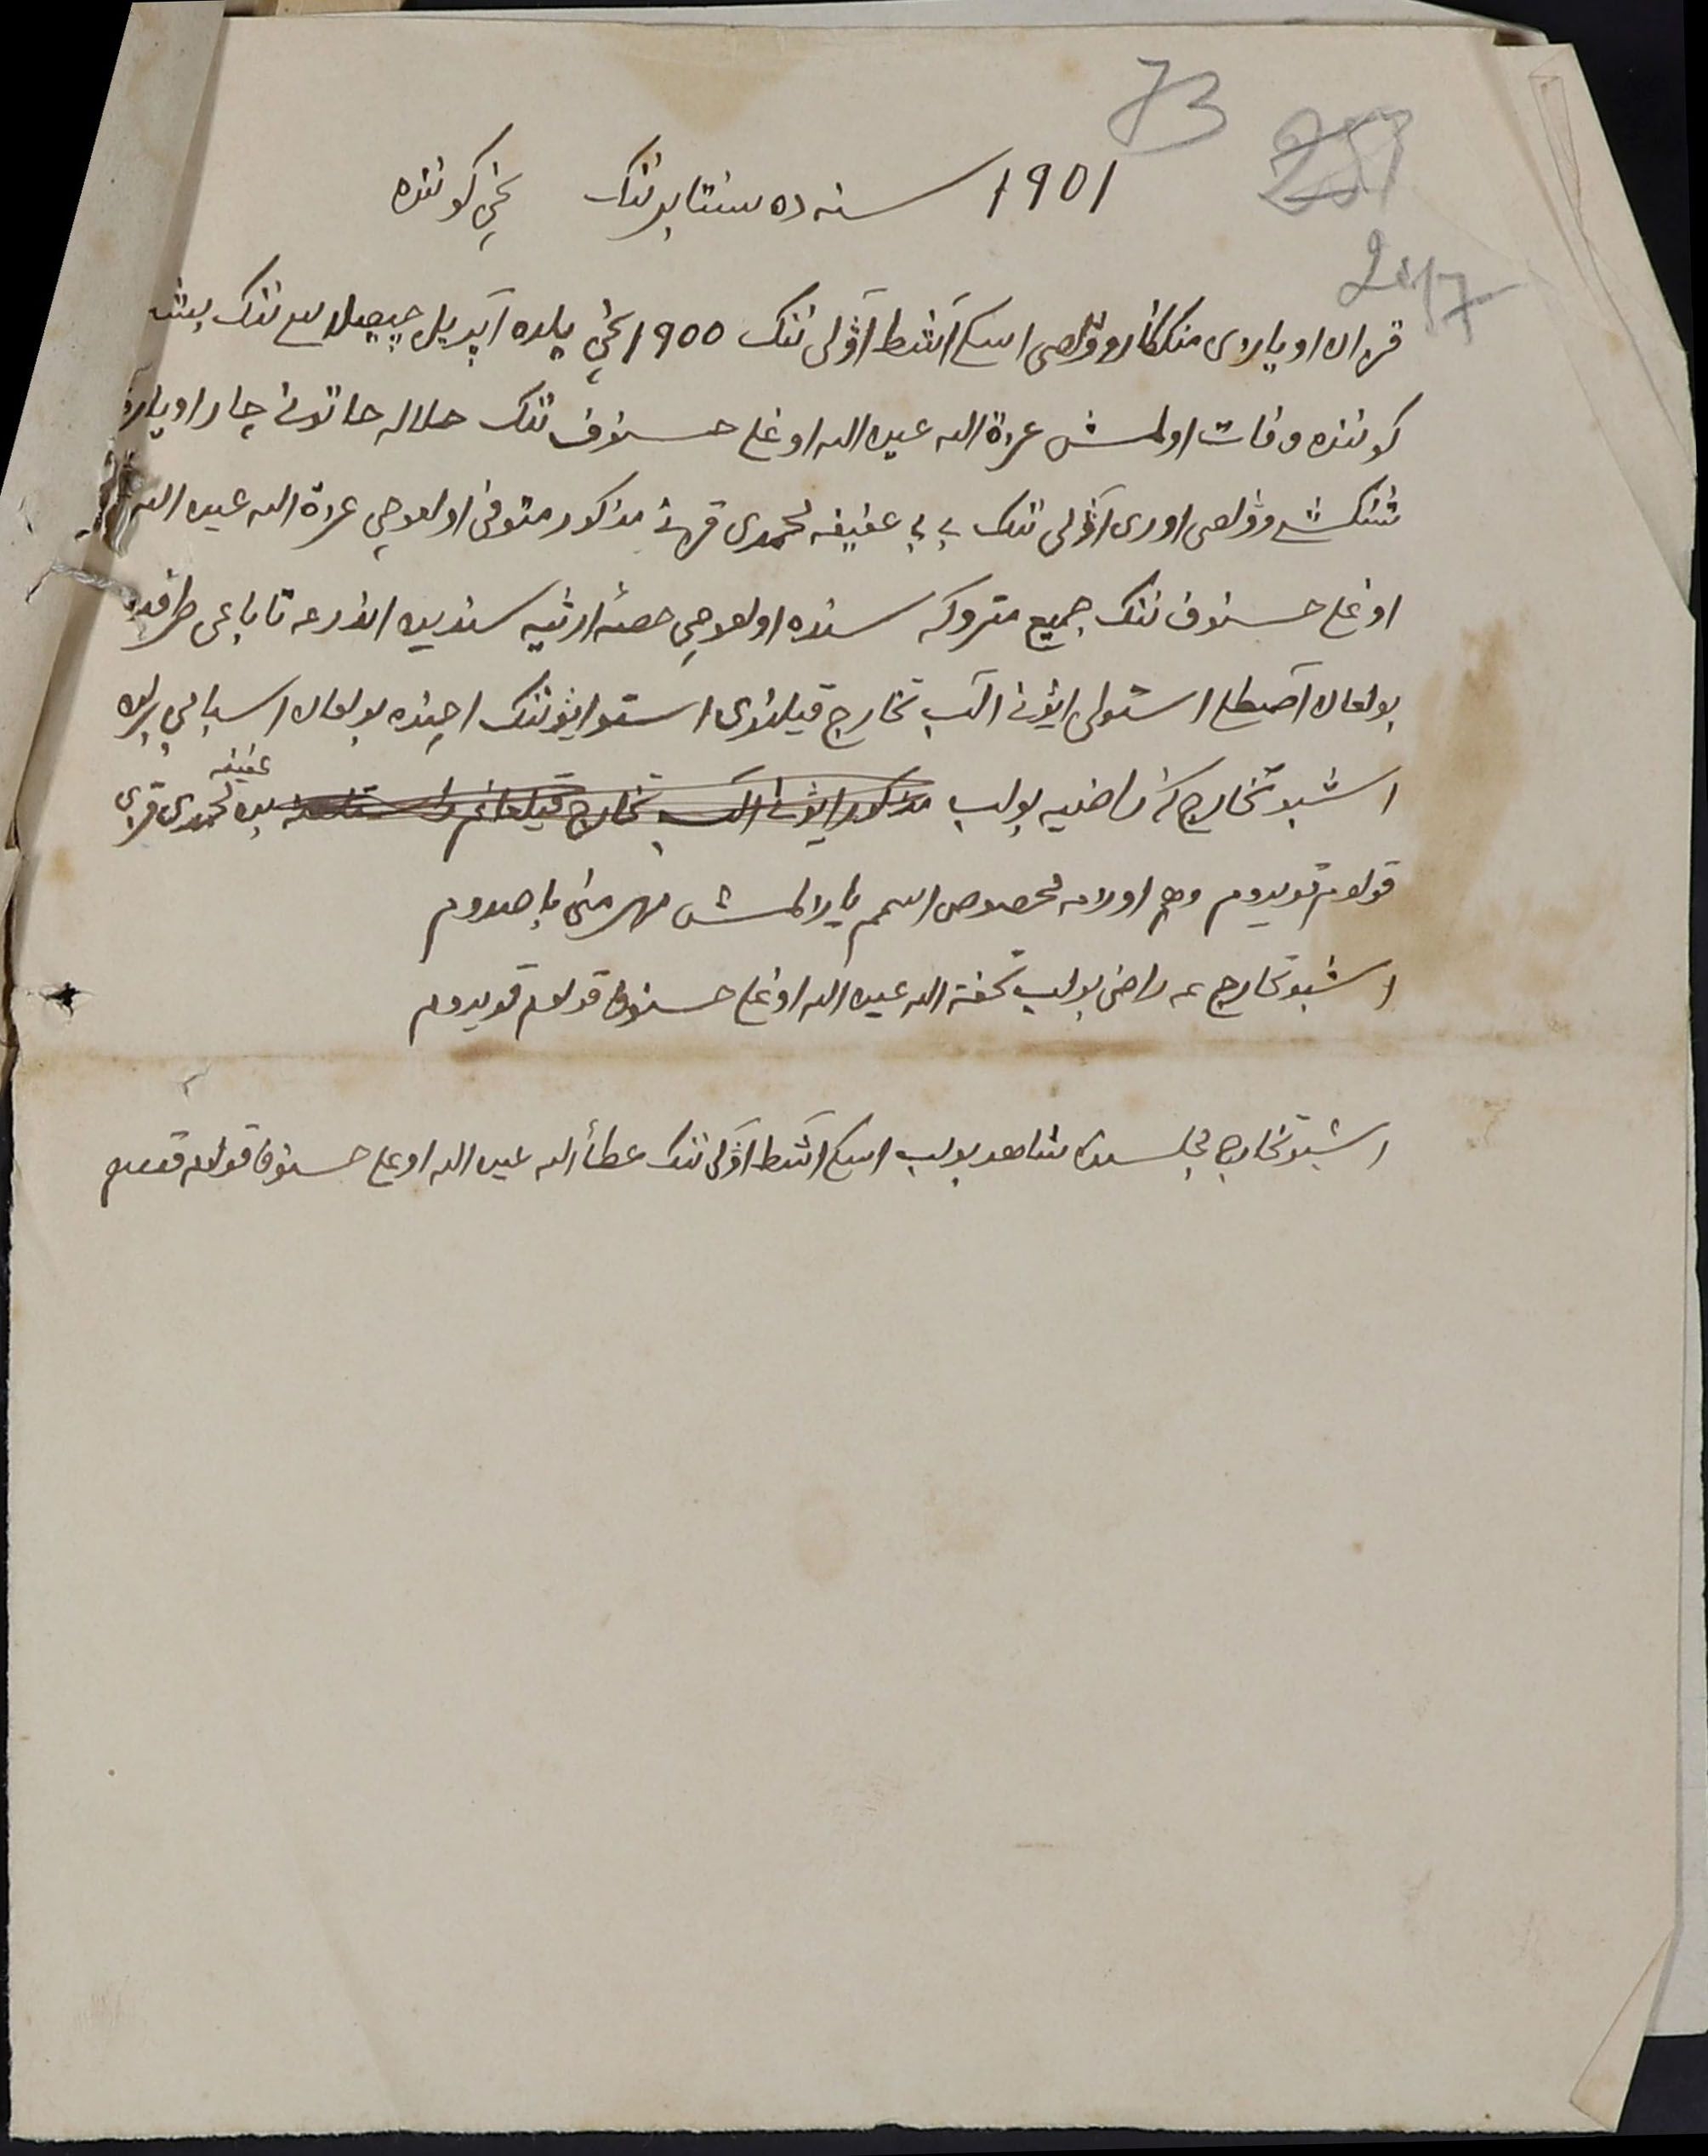 73
257
247
1901 سنه ده سنتابرننک نچی کوننده
قزان اویازی منککار وولصی اسکی آشط آولی ننک 1900 نچی یلده آپریل چیصلاسی ننک بیش
کوننده وفات اولمش عزة الله عبید الله اوغلی حسنوف ننک حلاله خاتونی چار اویازی
شنکشی وولصی اوری آولی ننک بی بی عفیفه محمدی قزی مذکور متوفی اولغوچی عزة الله عبید الله
اوغلی حسنوف ننک جمیع متروکه سنده اولغوچی حصۀ ارثیه سندین تابا طرفنده
بولغان استولی ایونی آلب تخارج قیلندی استو ایوننک اچنده بولغان اسبابی برله
اشبو تخارج که راضیه بولب مذکور ایونی آلب تخارج قیلغانم عفیفه محمدی قزی
قولوم قویدوم وهم اوزمه مخصوص اسمم یازلمش مهرمنی باصدوم
اشبو تخارج غه راضی بولب تحفة الله عبید الله اوغلی حسنوف قولوم قویدوم
اشبو تخارج مجلسنده شاهد بولب اسکی آشط آولی ننک عطأ الله عبید الله اوغلی حسنوف قولوم قویدم